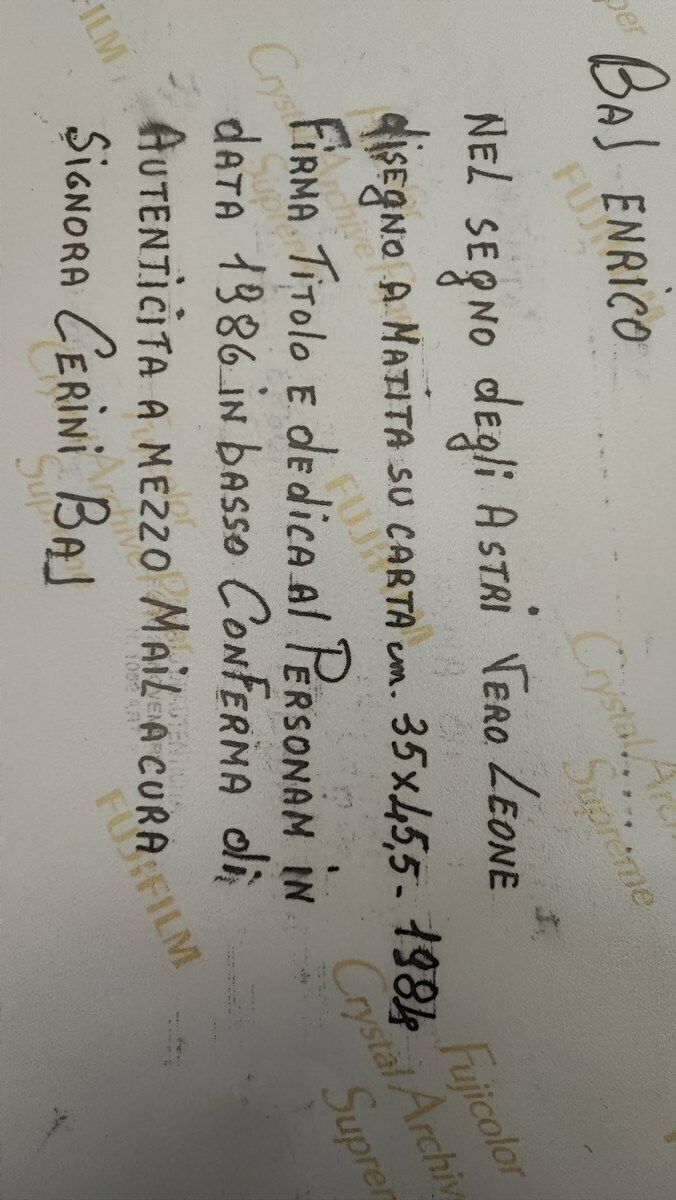 BAJ ENRICO
NEL SEGNO degli ASTRI VERO LEONE
disEGNO A MATITA SU CARTA cm. 35x45,5- 1984
FIRMA TITOLO E dEdiCA Al PERSONAM iN
dATA 1986 iN bASSO CONFERMA di
AUTENTICITA A MEZZO MAIL A CURA
SIGNORA CERINI BAJ
FUJIFILM
Fujicolor
Crystal Archive
Supreme